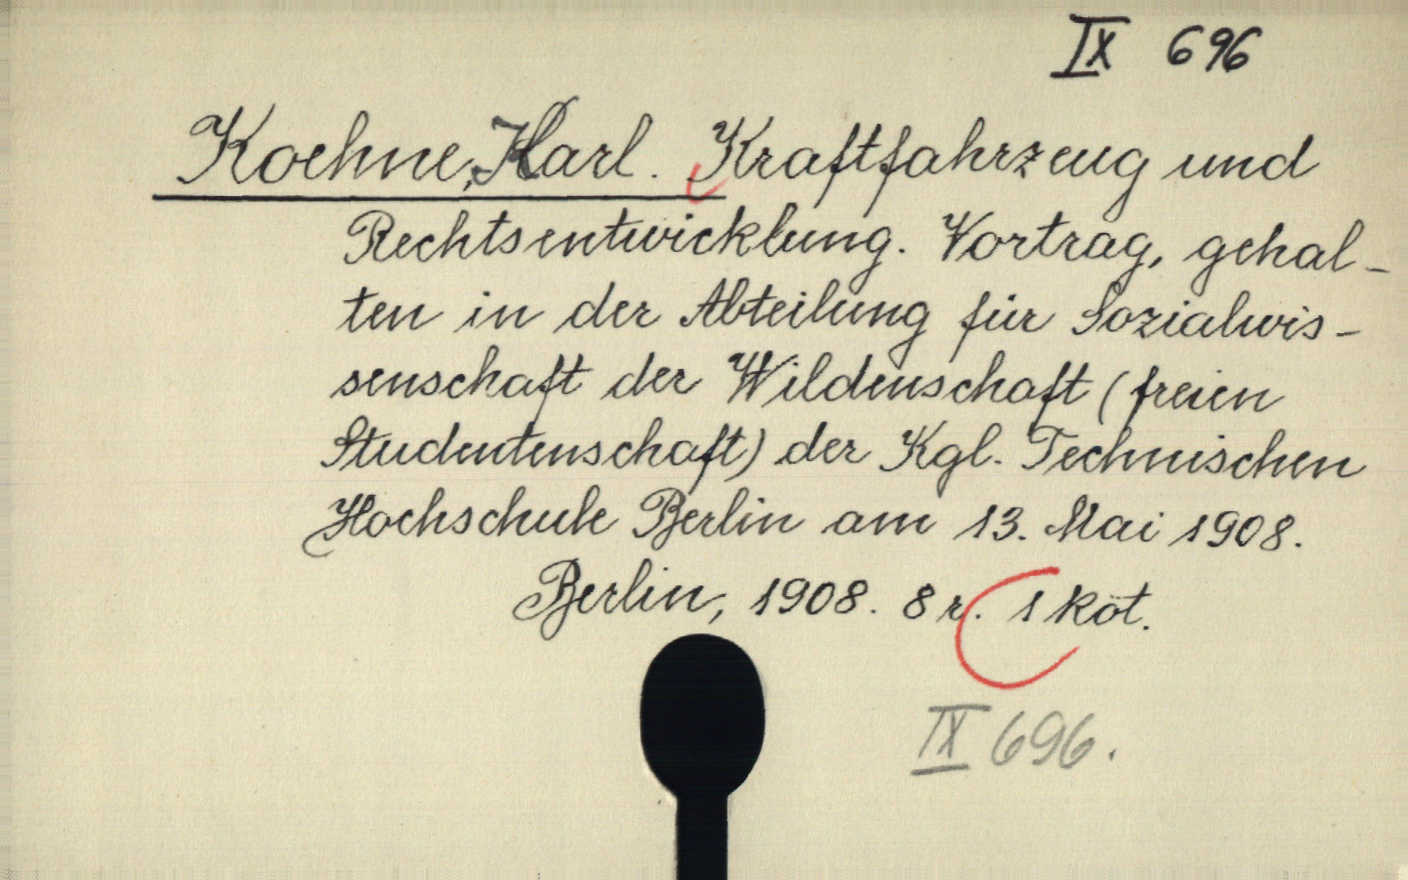 IX 696
Koehne, Karl. Kraftfahrzeug und
Rechtsentwicklung. Vortrag, gehal-
ten in der Abteilung für Sozialwis-
senschaft der Wildenschaft (freien
Studentenschaft) der Kgl. Technischen
Hochschule Berlin am 13. Mai 1908.
Berlin, 1908. 8 r. 1 köt.
IX 696.